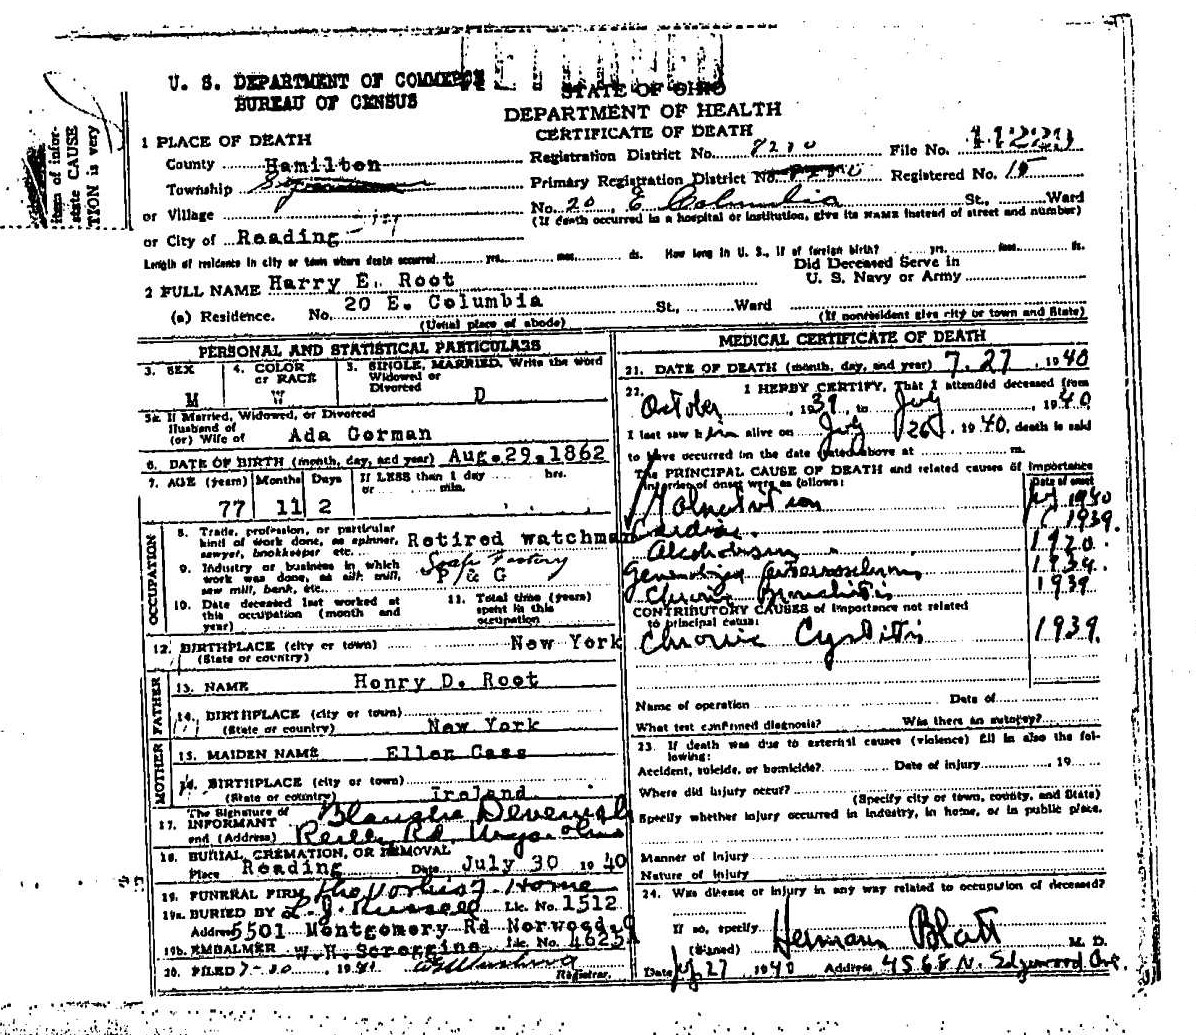 U. S. DEPARTMENT OF COMMERCE
BUREAU OF CENSUS
STATE OF OHIO
DEPARTMENT OF HEALTH
CERTIFICATE OF DEATH
item of infor-
state CAUSE
TION is very
1 PLACE OF DEATH
County Hamilton
Registration District No. 8210 File No.
Township
Primary Registration District No. Registered No. 15
or Village
No. 20 E Columbia St., Ward
(If death occurred in a hospital or institution, give its NAME instead of street and number)
or City of Reading
Length of residence in city or town where death occurred yrs. mos. ds. How long in U. S., if of foreign birth? yrs. mos. ds.
2 FULL NAME Harry E. Root
Did Deceased Serve in
U. S. Navy or Army
(a) Residence. No. 20 E. Columbia St., Ward
(Usual place of abode) (If nonresident give city or town and State)
PERSONAL AND STATISTICAL PARTICULARS
3. SEX 4. COLOR or RACE 5. SINGLE, MARRIED, Write the word
Widowed or
Divorced
M W D
5a. If Married, Widowed, or Divorced
Husband of
(or) Wife of Ada Gorman
6. DATE OF BIRTH (month, day, and year) Aug. 29. 1862
7. AGE (years) Months Days If LESS than 1 day hrs.
or min.
77 11 2
OCCUPATION
8. Trade, profession, or particular
kind of work done, as spinner,
sawyer, bookkeeper etc. Retired watchman
9. Industry or business in which
work was done, as silk mill,
saw mill, bank, etc. Soap Factory
P & G
10. Date deceased last worked at
this occupation (month and
year)
11. Total time (years)
spent in this
occupation
12. BIRTHPLACE (city or town) New York
(State or country)
FATHER
13. NAME Henry D. Root
14. BIRTHPLACE (city or town)
(State or country) New York
MOTHER
15. MAIDEN NAME Ellen Cass
16. BIRTHPLACE (city or town)
(State or country) Ireland
17. The Signature of
INFORMANT Blanche
and (Address) Reilly Rd.
18. BURIAL, CREMATION, OR REMOVAL
Place Reading Date July 30 1940
19. FUNERAL FIRM Home
19a. BURIED BY L. J. Russell Lic. No. 1512
Address 5501 Montgomery Rd Norwood
19b. EMBALMER W. H. Scroggins Lic. No.
20. FILED
Registrar.
MEDICAL CERTIFICATE OF DEATH
21. DATE OF DEATH (month, day, and year) 7.27, 1940
22. I HERBY CERTIFY, That I attended deceased from
October, 1939, to July, 1940
I last saw him alive on July 26, 1940, death is said
to have occurred on the date stated above at m.
The PRINCIPAL CAUSE OF DEATH and related causes of importance
in order of onset were as follows: Date of onset
Malnutrition 1940
Cardiac 1939.
Alcoholism 1920.
Generalized Arteriosclerosis
Chronic Bronchitis 1939
CONTRIBUTORY CAUSES of importance not related
to principal cause:
Chronic Cystitis 1939.
Name of operation Date of
What test confirmed diagnosis? Was there an autopsy?
23. If death was due to external causes (violence) fill in also the fol-
lowing:
Accident, suicide, or homicide? Date of injury 19
Where did injury occur?
(Specify city or town, county, and State)
Specify whether injury occurred in industry, in home, or in public place.
Manner of injury
Nature of injury
24. Was disease or injury in any way related to occupation of deceased?
If so, specify
(Signed) Hermann Blatt M. D.
Date 27 1940 Address 4568 N. Edgewood Ave.